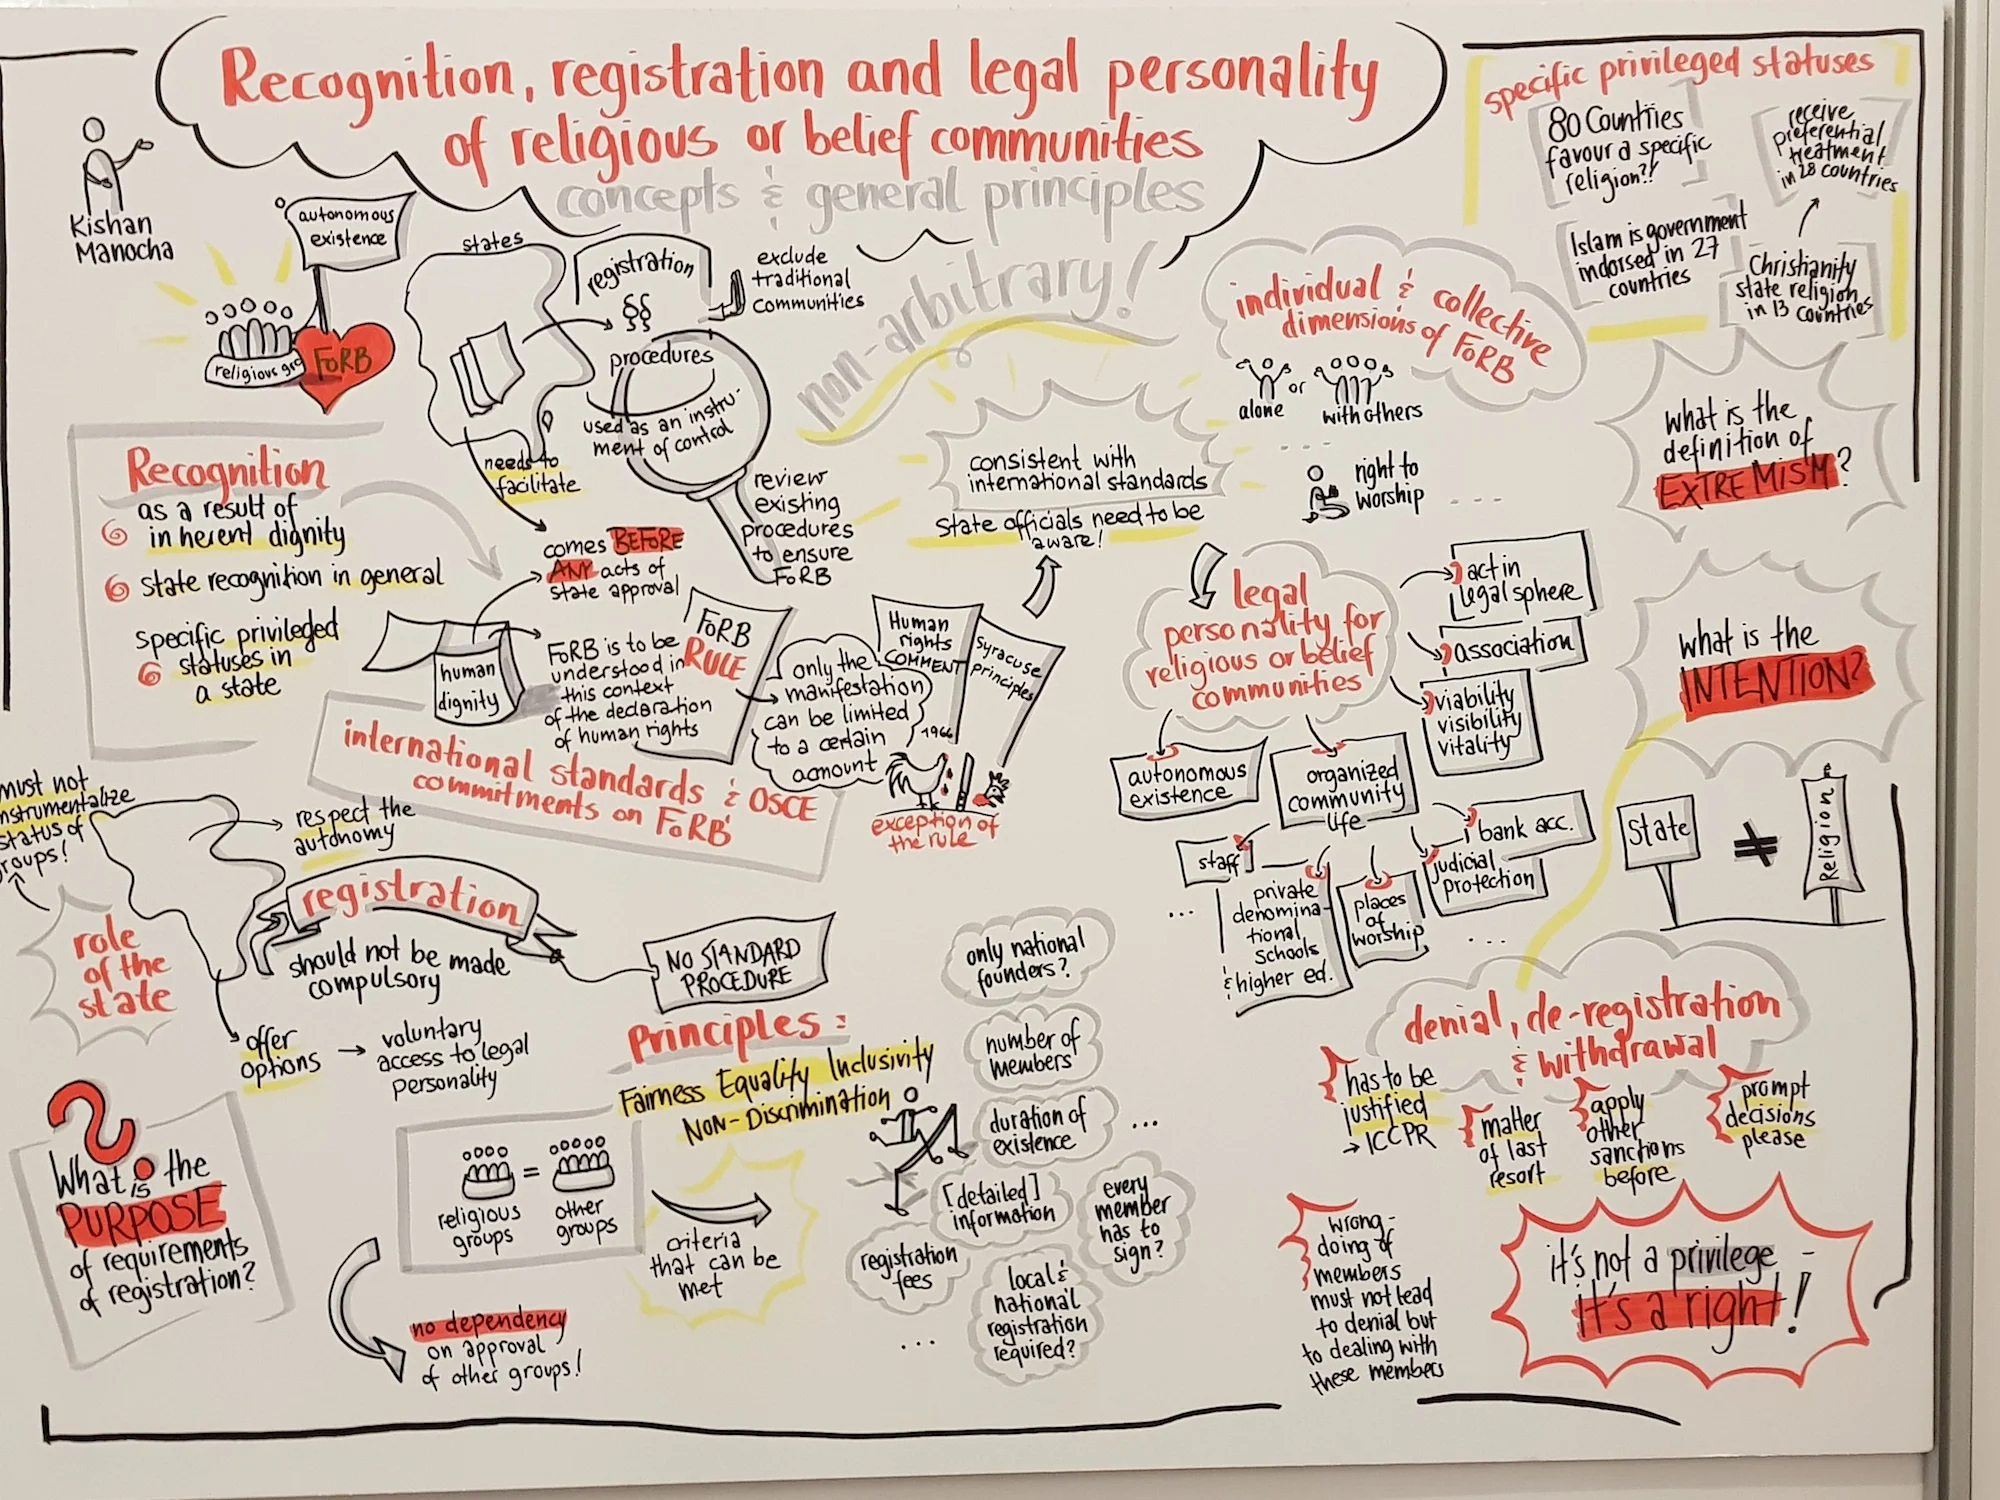 Recognition, registration and legal personality
of religious or belief communities
concepts & general principles
Kishan
Manocha
autonomous
existence
religious gro
FoRB
states
registration
§§
procedures
used as an instru-
ment of control
exclude
traditional
communities
needs to
facilitate
review
existing
procedures
to ensure
FoRB
non-arbitrary!
specific privileged statuses
80 Countries
favour a specific
religion?!
receive
preferential
treatment
in 28 countries
Islam is government
indorsed in 27
countries
Christianity
state religion
in 13 countries
individual & collective
dimensions of FoRB
alone
or
with others
right to
worship
What is the
definition of
EXTREMISM?
Recognition
as a result of
inherent dignity
state recognition in general
specific privileged
statuses in
a state
comes BEFORE
ANY acts of
state approval
human
dignity
FoRB is to be
understood in
this context
of the declaration
of human rights
FoRB
RULE
only the
manifestation
can be limited
to a certain
amount
Human
rights
COMMENT
1966
Syracuse
principles
exception of
the rule
consistent with
international standards
State officials need to be
aware!
international standards & OSCE
commitments on FoRB
legal
personality for
religious or belief
communities
act in
legal sphere
association
viability
visibility
vitality
autonomous
existence
organized
community
life
bank acc.
judicial
protection
staff
private
denomina-
tional
schools
& higher ed.
places
of
worship
...
...
What is the
INTENTION?
State
≠
Religion
must not
instrumentalize
status of
groups!
role
of the
state
respect the
autonomy
registration
should not be made
compulsory
NO STANDARD
PROCEDURE
offer
options
voluntary
access to legal
personality
Principles:
Fairness Equality Inclusivity
Non-Discrimination
What is the
PURPOSE
of requirements
of registration?
religious
groups
=
other
groups
no dependency
on approval
of other groups!
criteria
that can be
met
only national
founders?
number of
members
duration of
existence
...
[detailed]
information
every
member
has to
sign?
registration
fees
local &
national
registration
required?
...
denial, de-registration
& withdrawal
has to be
justified
→ ICCPR
matter
of last
resort
apply
other
sanctions
before
prompt
decisions
please
wrong-
doing of
members
must not lead
to denial but
to dealing with
these members
it's not a privilege -
it's a right!